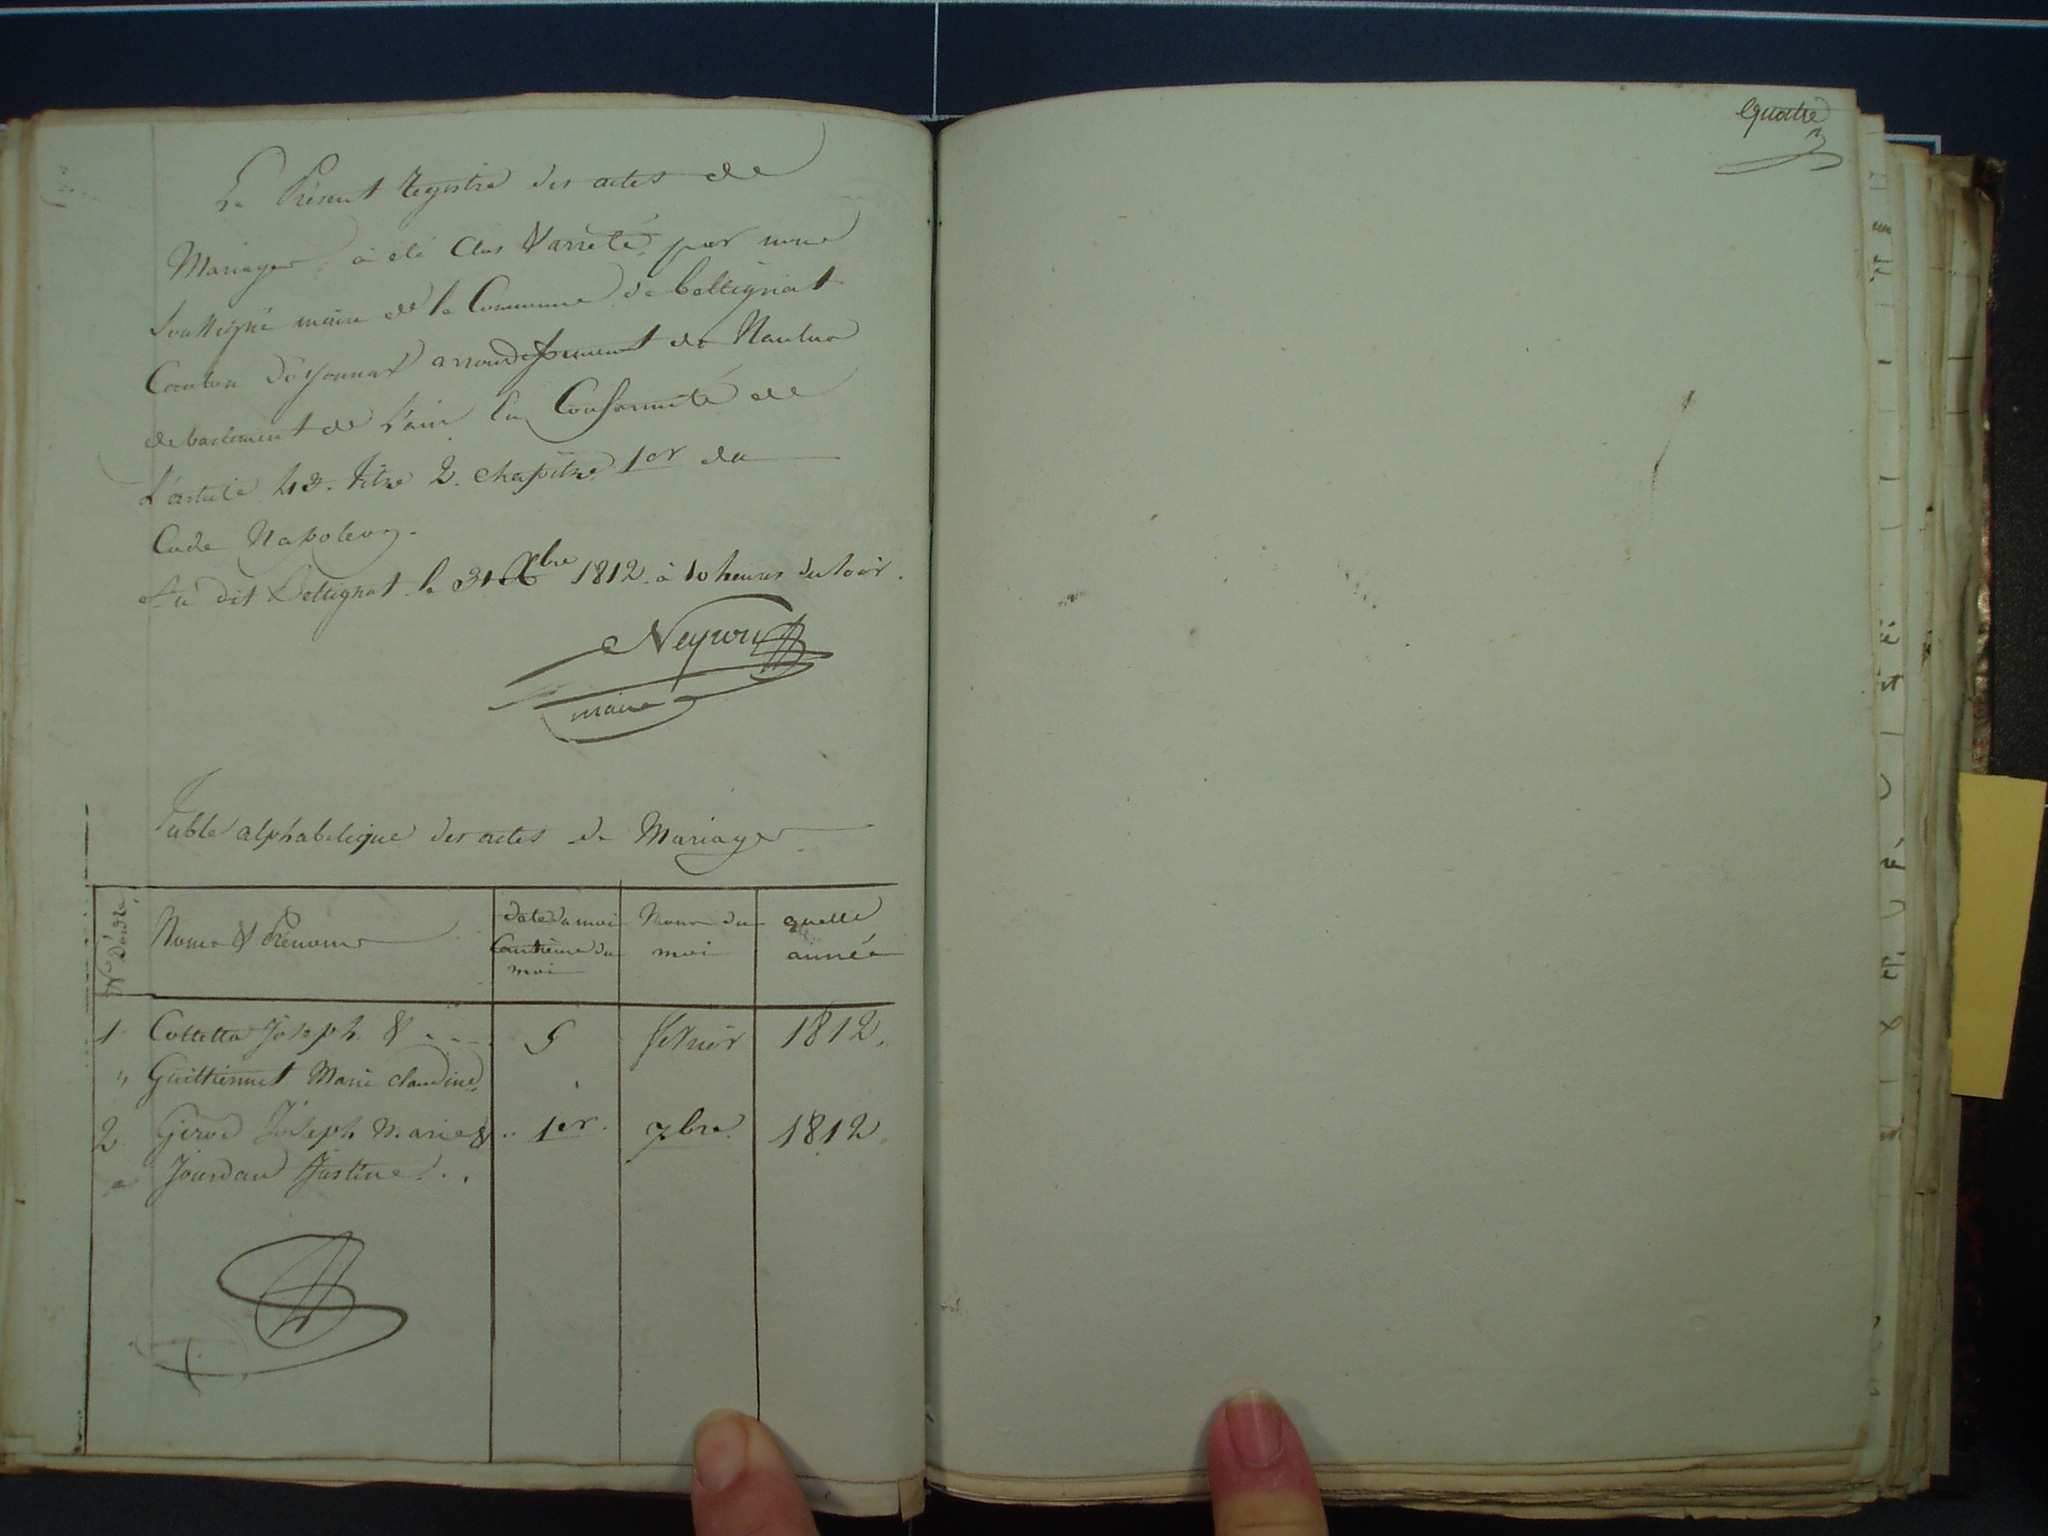 quatre
Le Présent Registre des actes de
Mariages a été Clos & arrêté par nous
Soussigné maire de la Commune de Bellignat
Canton d'oyonnax arrondissement de Nantua
debartement de L'ain En Conformité de
L'article 43. titre 2. chapitre 1er du
Code Napoleon.
dit Bellignat le 31 Xbre 1812. à 10 heures du Soir.
Neyron
maire
Table alphabetique des actes de Mariages
No D'ordre
Noms & Prénoms
date du moi
Cantième du
moi
Noms du
moi
quelle
année
1 Colletta Joseph & 5 fevrier 1812.
" Guillermet Marie claudine
2. Girod Joseph Marie & 1er. 7bre. 1812
" Jourdan Justine